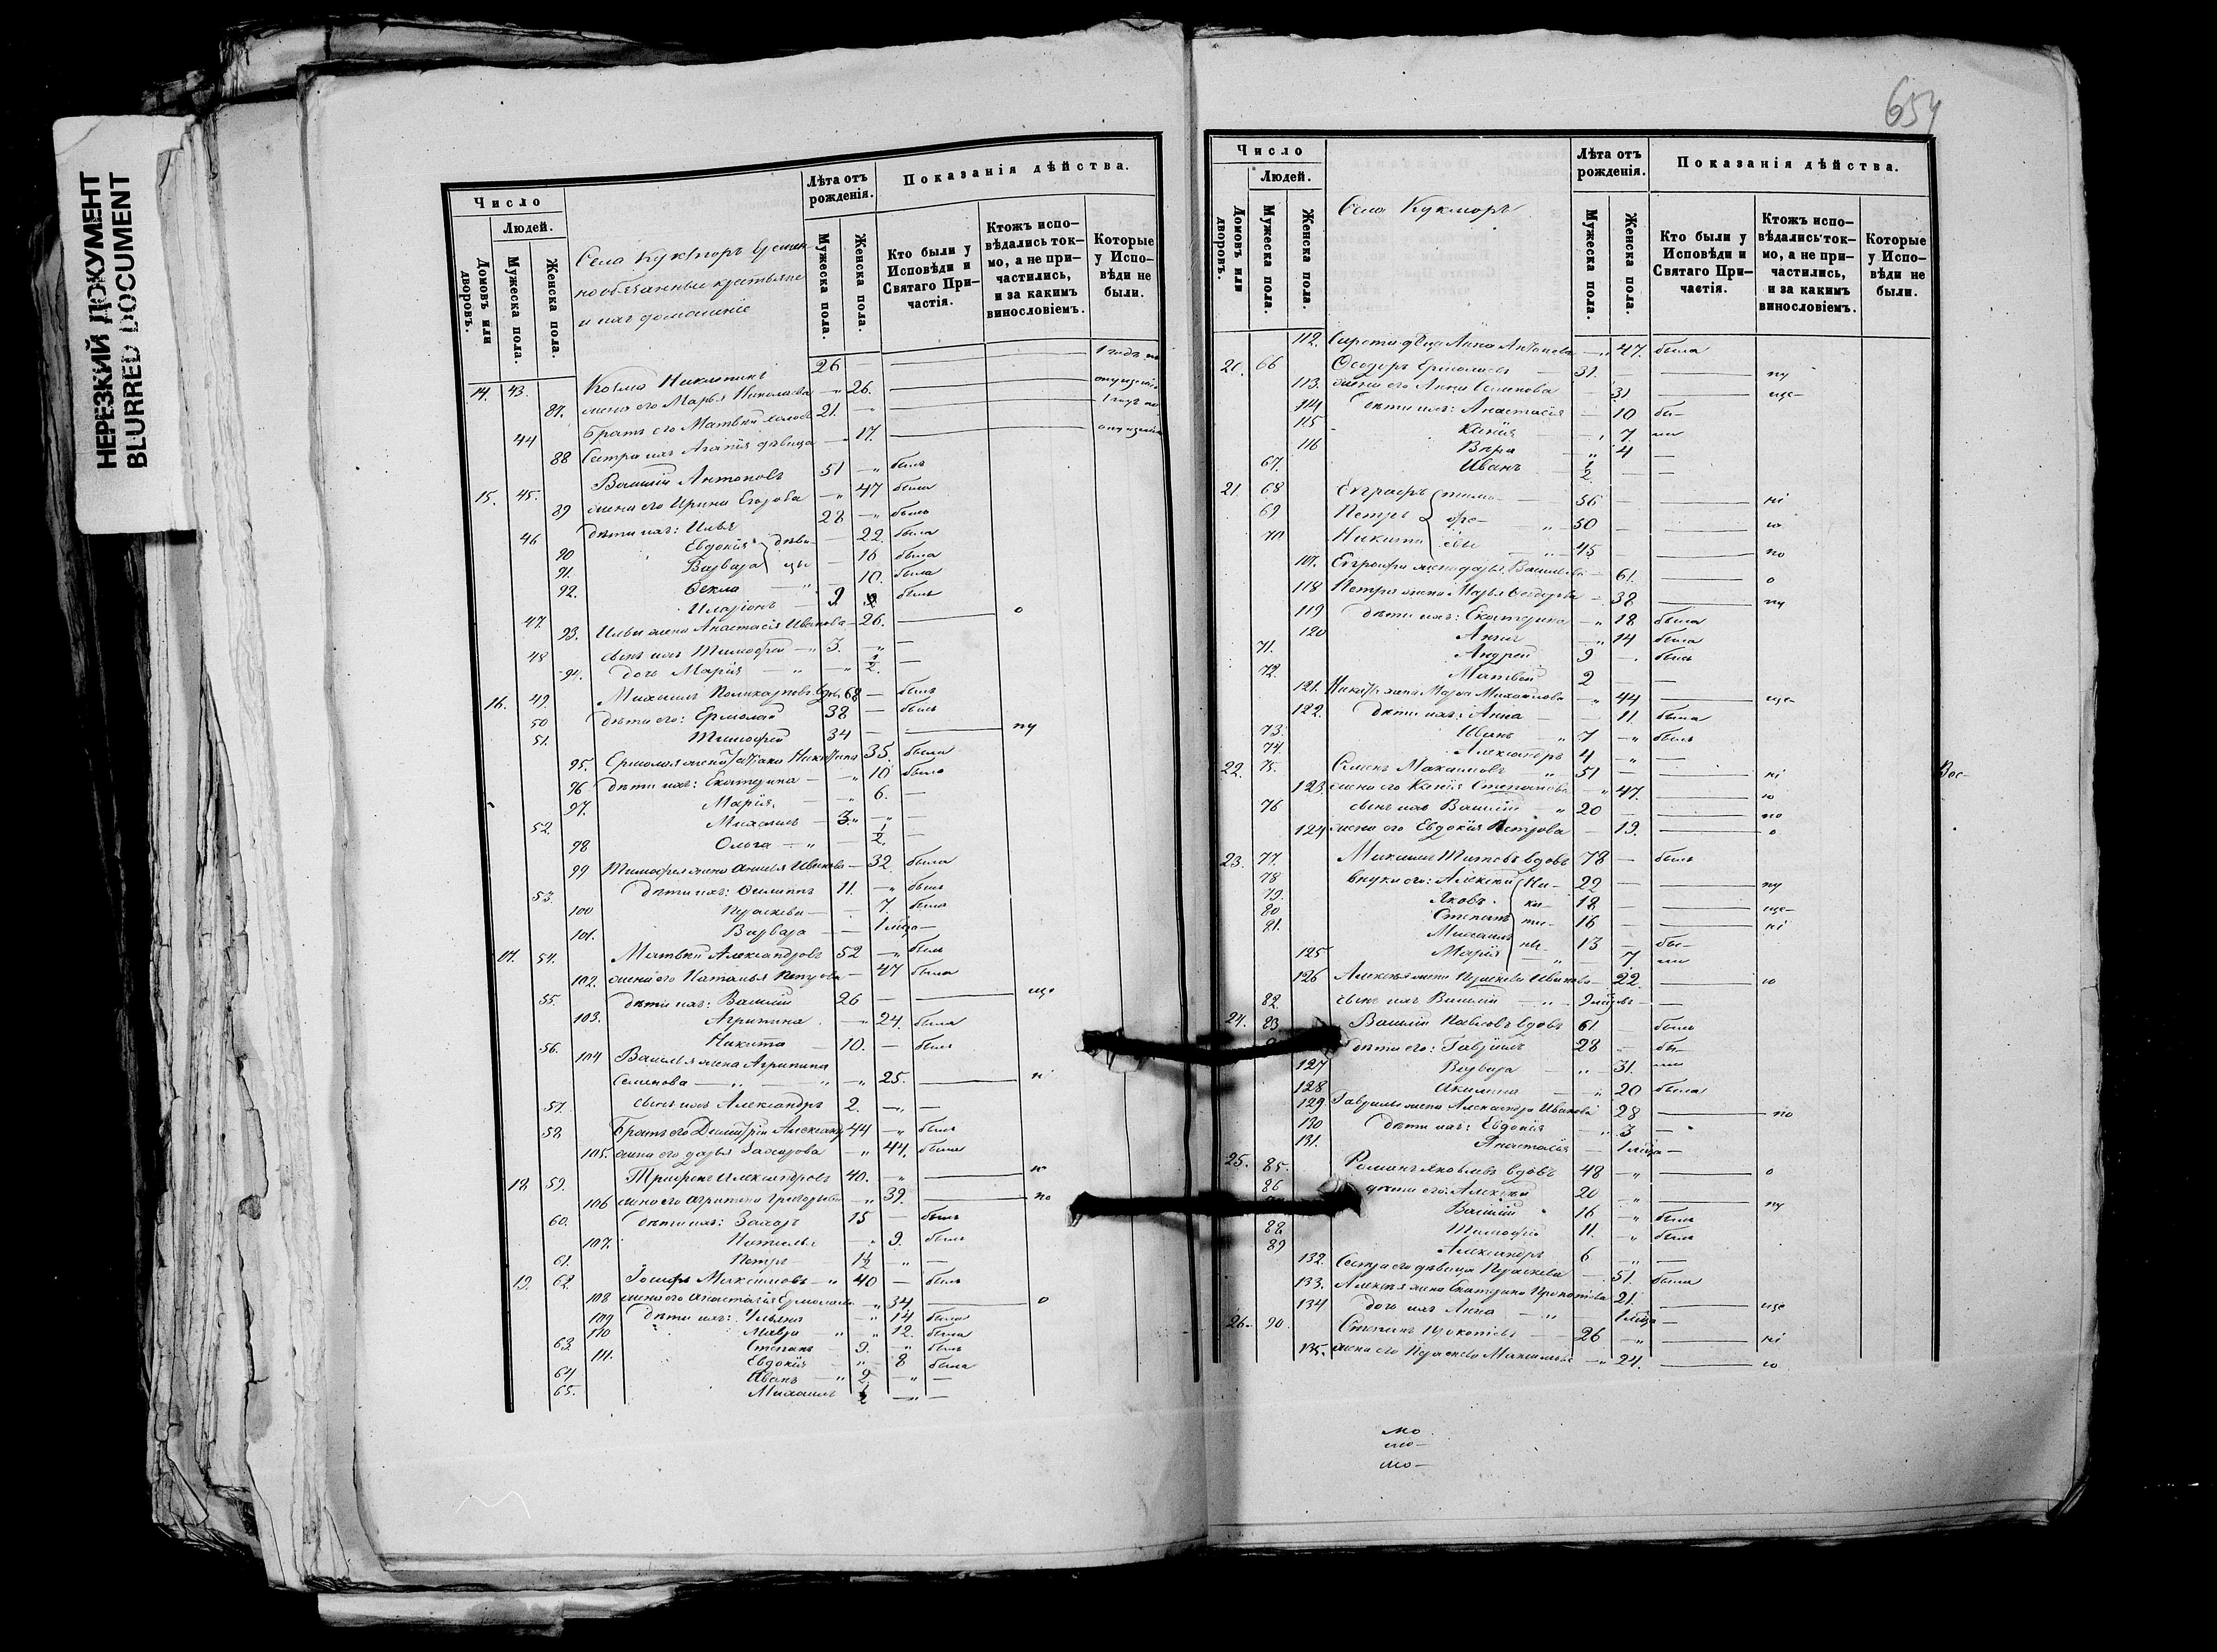 НЕРЕЗКИЙ ДОКУМЕНТ
BLURRED DOCUMENT
Число
Людей.
Домовъ или дворовъ.
Мужеска пола.
Женска пола.
Села Кукморъ
и ихъ домашніе
Лѣта отъ рожденія.
Мужеска пола.
Женска пола.
Показанія дѣйства.
Кто были у Исповѣди и Святаго Причастія.
Ктожъ исповѣдались токмо, а не причастились, и за какимъ винословіемъ.
Которые у Исповѣди не были.
14. 43. Козма 26
87. жена его Марья Николаева 26.
44 Братъ его Матвѣй 21.
88 Сестра ихъ Агапія дѣвица 17.
15. 45. Василій Антоновъ 51 былъ
89 жена его Ирина Егорова 47 была
46 дѣти ихъ: Илья 28 былъ
90 Евдокія дѣви- 22. была
91. Варвара цы 16 была
92. Ѳекла 10. была
47. Иларіонъ 9 былъ
93. Ильи жена Анастасія Иванова 26. о
48 сынъ ихъ Тимофей 3.
94. дочь Марія 1/2
16. 49. Михаилъ Поликарповъ вдовъ 68 былъ
50 дѣти его: Ермолай 38 былъ
51. Тимофей 34 пу
95. Ермолая жена 35. была
96 дѣти ихъ: Екатерина 10 была
97. Марія 6.
52. Михаилъ 3.
98 Ольга 1/2.
99 Тимофея жена Анисья Иванова 32 была
53. дѣти ихъ: Филиппъ 11. былъ
100 Праскева 7. была
101. Варвара 1 мѣся
17. 54. Матвѣй Александровъ 52 былъ
102. жена его Наталья Петрова 47 была
55. дѣти ихъ: Василій 26 ще
103. Агрипина 24. была
56. Никита 10. былъ
104 Василья жена Агрипина
Семенова 25. ні
57. сынъ ихъ Александръ 2.
58 Братъ его Димитрій Александр 44 былъ
105. жена его Дарья Захарова 44. была
18 59. Трифонъ Александровъ 40. ю
106 жена его Агрипина Григорьева 39. по
60. дѣти ихъ: Захаръ 15 былъ
107. Наталья 9. была
61. Петръ 1 1/2
19. 62. Іосифъ Максимовъ 40 былъ
108 жена его Анастасія Ермолаева 34. о
109 дѣти ихъ: Ульяна 14 была
110 Мавра 12. была
63. Степанъ 9. былъ
111. Евдокія 8 была
64 Иванъ 2
65. Михаилъ 1/2
654
Число
Людей.
Домовъ или дворовъ.
Мужеска пола.
Женска пола.
Села Кукморъ
Лѣта отъ рожденія.
Мужеска пола.
Женска пола.
Показанія дѣйства.
Кто были у Исповѣди и Святаго Причастія.
Ктожъ исповѣдались токмо, а не причастились, и за какимъ винословіемъ.
Которые у Исповѣди не были.
112. Сирота дѣвица Анна Антонова 47. была
20. 66 Ѳеодоръ Ермолаевъ 31. пу
113. жена его Анна Семенова 31 ще-
114 дѣти ихъ: Анастасія 10 бы-
115 Ксенія 7 ли
116 Вѣра 4
67. Иванъ 1/2
21. 68 Евграфъ тимо- 56 ні
69 Петръ фе- 50 ю
70 Никита евы 45 по
107. Евграфа жена Дарья Васильева 61. о
118 Петра жена Марья Ѳеодорова 38 пу
119 дѣти ихъ: Екатерина 18 была
120 Анна 14 была
71. Андрей 9 былъ
72. Матвѣй 2
121. Никиты жена Марья Михайлова 44 ще-
122. дѣти ихъ: Анна 11. была
73. Иванъ 7 былъ
74. Александръ 4
22. 75. Семенъ Максимовъ 51 ні Вос-
123. жена его Ксенія Степанова 47. ю
76 сынъ ихъ Василій 20 по
124 жена его Евдокія Петрова 19. о
23. 77. Михаилъ Титовъ вдовъ 78 былъ
78 внуки его: Алексѣй Ни- 22 пу
79. Яковъ ки- 18 ще-
80 Степанъ ти- 16 ні
81. Михаилъ ны 13 бы-
125 Марія 7 ли
126 Алексѣя жена Праскева Иванова 22. ю
82. сынъ ихъ Василій 9 мѣся
24. 83 Василій Павловъ вдовъ 61. былъ
дѣти его: Гавріилъ 28 бы-
127 Варвара 31. ли
128 Акилина 20 была
129 Гавріила жена Александра Иванова 28 по
130 дѣти ихъ: Евдокія 3
131. Анастасія 1 мѣся
25. 85. Романъ Яковлевъ вдовъ 48 о
86 дѣти его: Алексѣй 20 пу
Василій 16 былъ
88 Тимофей 11. былъ
89 Александръ 6
132. Сестра его дѣвица Праскева 51. была
133. Алексѣя жена Екатерина Прокопіева 21. ще
134 дочь ихъ Анна 1 мѣся
26. 90. Степанъ Прокопіевъ 26 ні
135. жена его Праскева 24. ю
мо
мо-
мо-